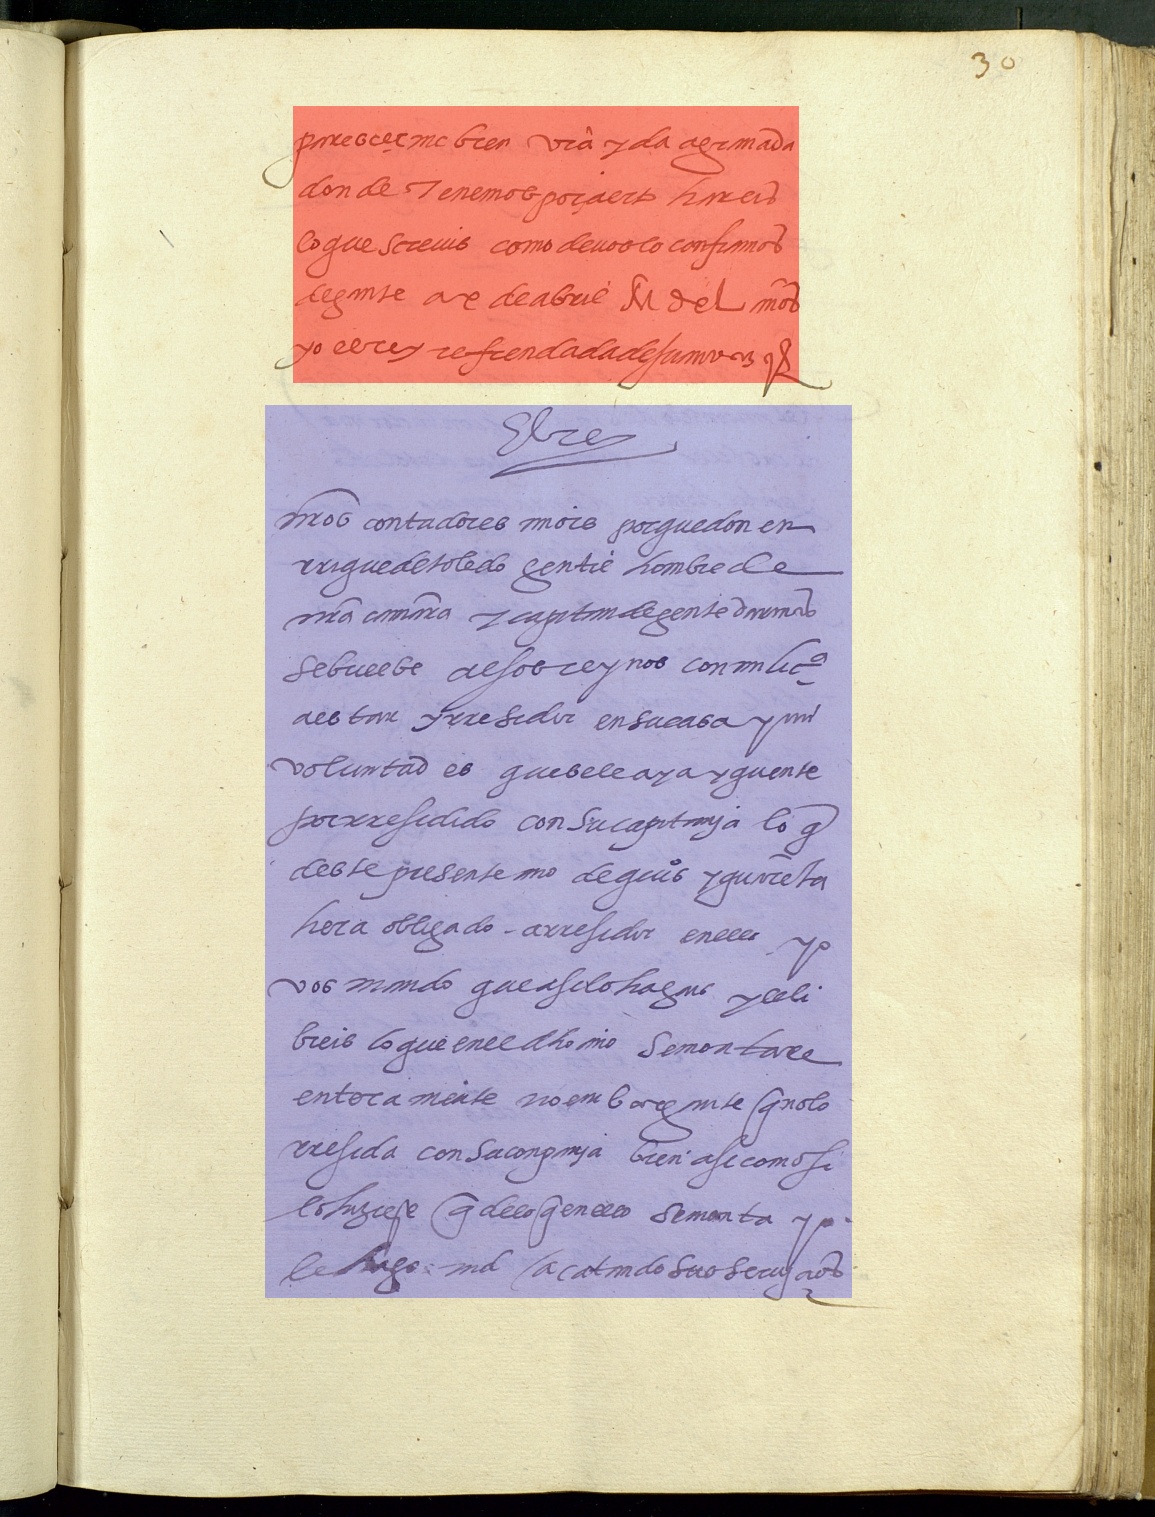 30
parescerme bien vr̃a yda a gr̃mada
donde Tenemos por çierto hareis
lo que screuis como de uos lo confiamos
de gante a xe de abril M D e L años
yo el rey refrendada de su mano
El rey
nr̃os contadores mōis porque don en
rrique de toledo gentil hombre de
nr̃a camara y capitan de gente darmas
se buelbe a esos reynos con mi licª
a estar y rresidir en su casa y mi
voluntad es que se le aya y quente
por rresidido con su capitanja lo q̃
deste presente año de qis y quarēta
hera obligado a rresidir en ellos yo
vos mando que asi lo hagais y le li
breis lo que en el dho año se montare
enteramente no embargante q̃ no lo
rresida con su conpanja bien asi como si
lo hiziese q̃ de lo q̃ en ello se monta yo
le hago md acatando sus seruiçios